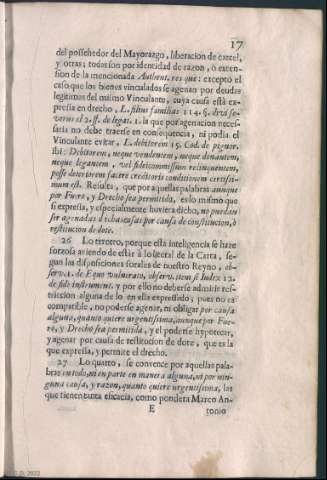 17
del possehedor del Mayorazgo, liberacion de carcel,
y otras; todas son por identidad de razon, ò exten-
sion de la mencionada Authent. res que: excepto el
caso que los bienes vinculados se agenan por deudas
legitimas del mismo Vinculante, cuya causa està ex-
pressa en drecho, L. filius familias 114. §. divi se-
verus el 2. ff. de legat. 1. la que por agenacion neces-
saria no debe traerse en consequencia, ni podia el
Vinculante evitar, L. debitorem 15. Cod. de pignor.
ibi: Debitorem, neque vendentem, neque donantem,
neque legantem, vel fideicommissum relinquentem,
posse deteriorem facere creditoris conditionem certissi-
mum est. Resulta, que por aquellas palabras aunque
por Fuero, y Drecho sea permitida, es lo mismo que
si expressa, y especialmente huviera dicho, no puedan
ser agenadas dichas casas por causa de constitucion, ò
restitucion de dote.
26 Lo tercero, porque esta inteligencia se haze
forzosa aviendo de estàr à lo literal de la Carta, se-
gun las disposiciones forales de nuestro Reyno, ob-
servat. de Equo vulnerato, observ. item si Iudex 12.
de fide instrument. y por ello no deberse admitir res-
triccion alguna de lo en ella expressado; pues no es
compatible, no poderse agenar, ni obligar por causa
alguna, quanto quiere urgentissima, aunque por Fue-
ro, y Drecho sea permitida, y el poderse hypotecar,
y agenar por causa de restitucion de dote, que es la
que expressa, y permite el drecho.
27 Lo quarto, se convence por aquellas pala-
bras en todo, ni en parte en manera alguna, ni por nin-
guna causa, y razon, quanto quiere urgentissima, las
que tienen tanta eficacia, como pondera Marco An-
E tonio